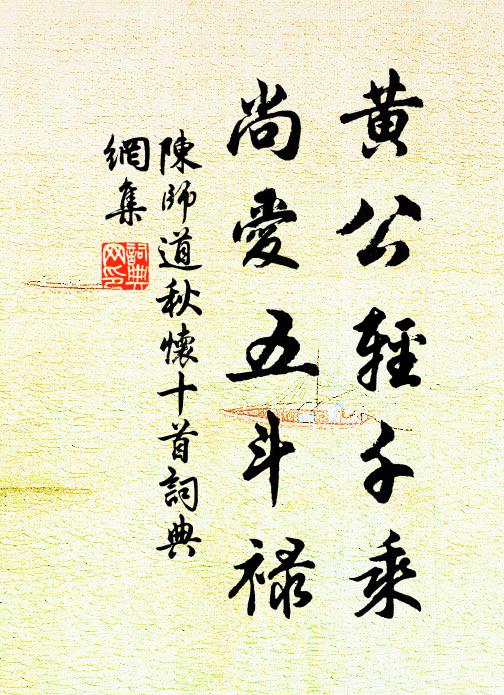 黄公輕千乘
尚愛五斗祿
陳師道秋懷十首詞典
網集
詞典
网印